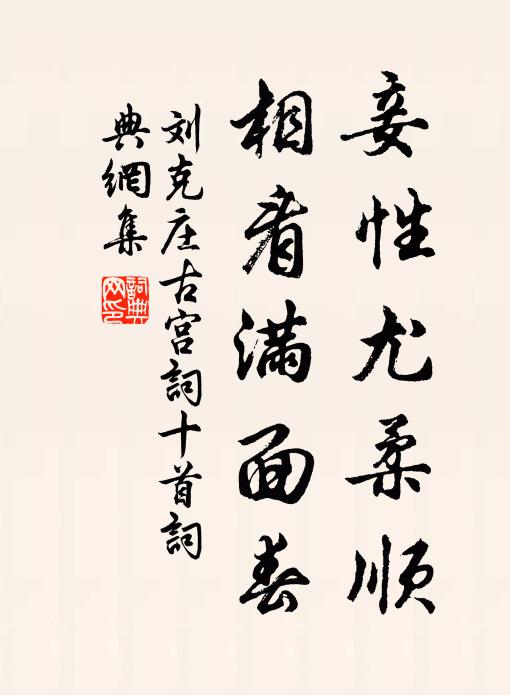 妾性尤柔顺
相看满面春
刘克庄古宫詞十首詞
典網集
詞典网印